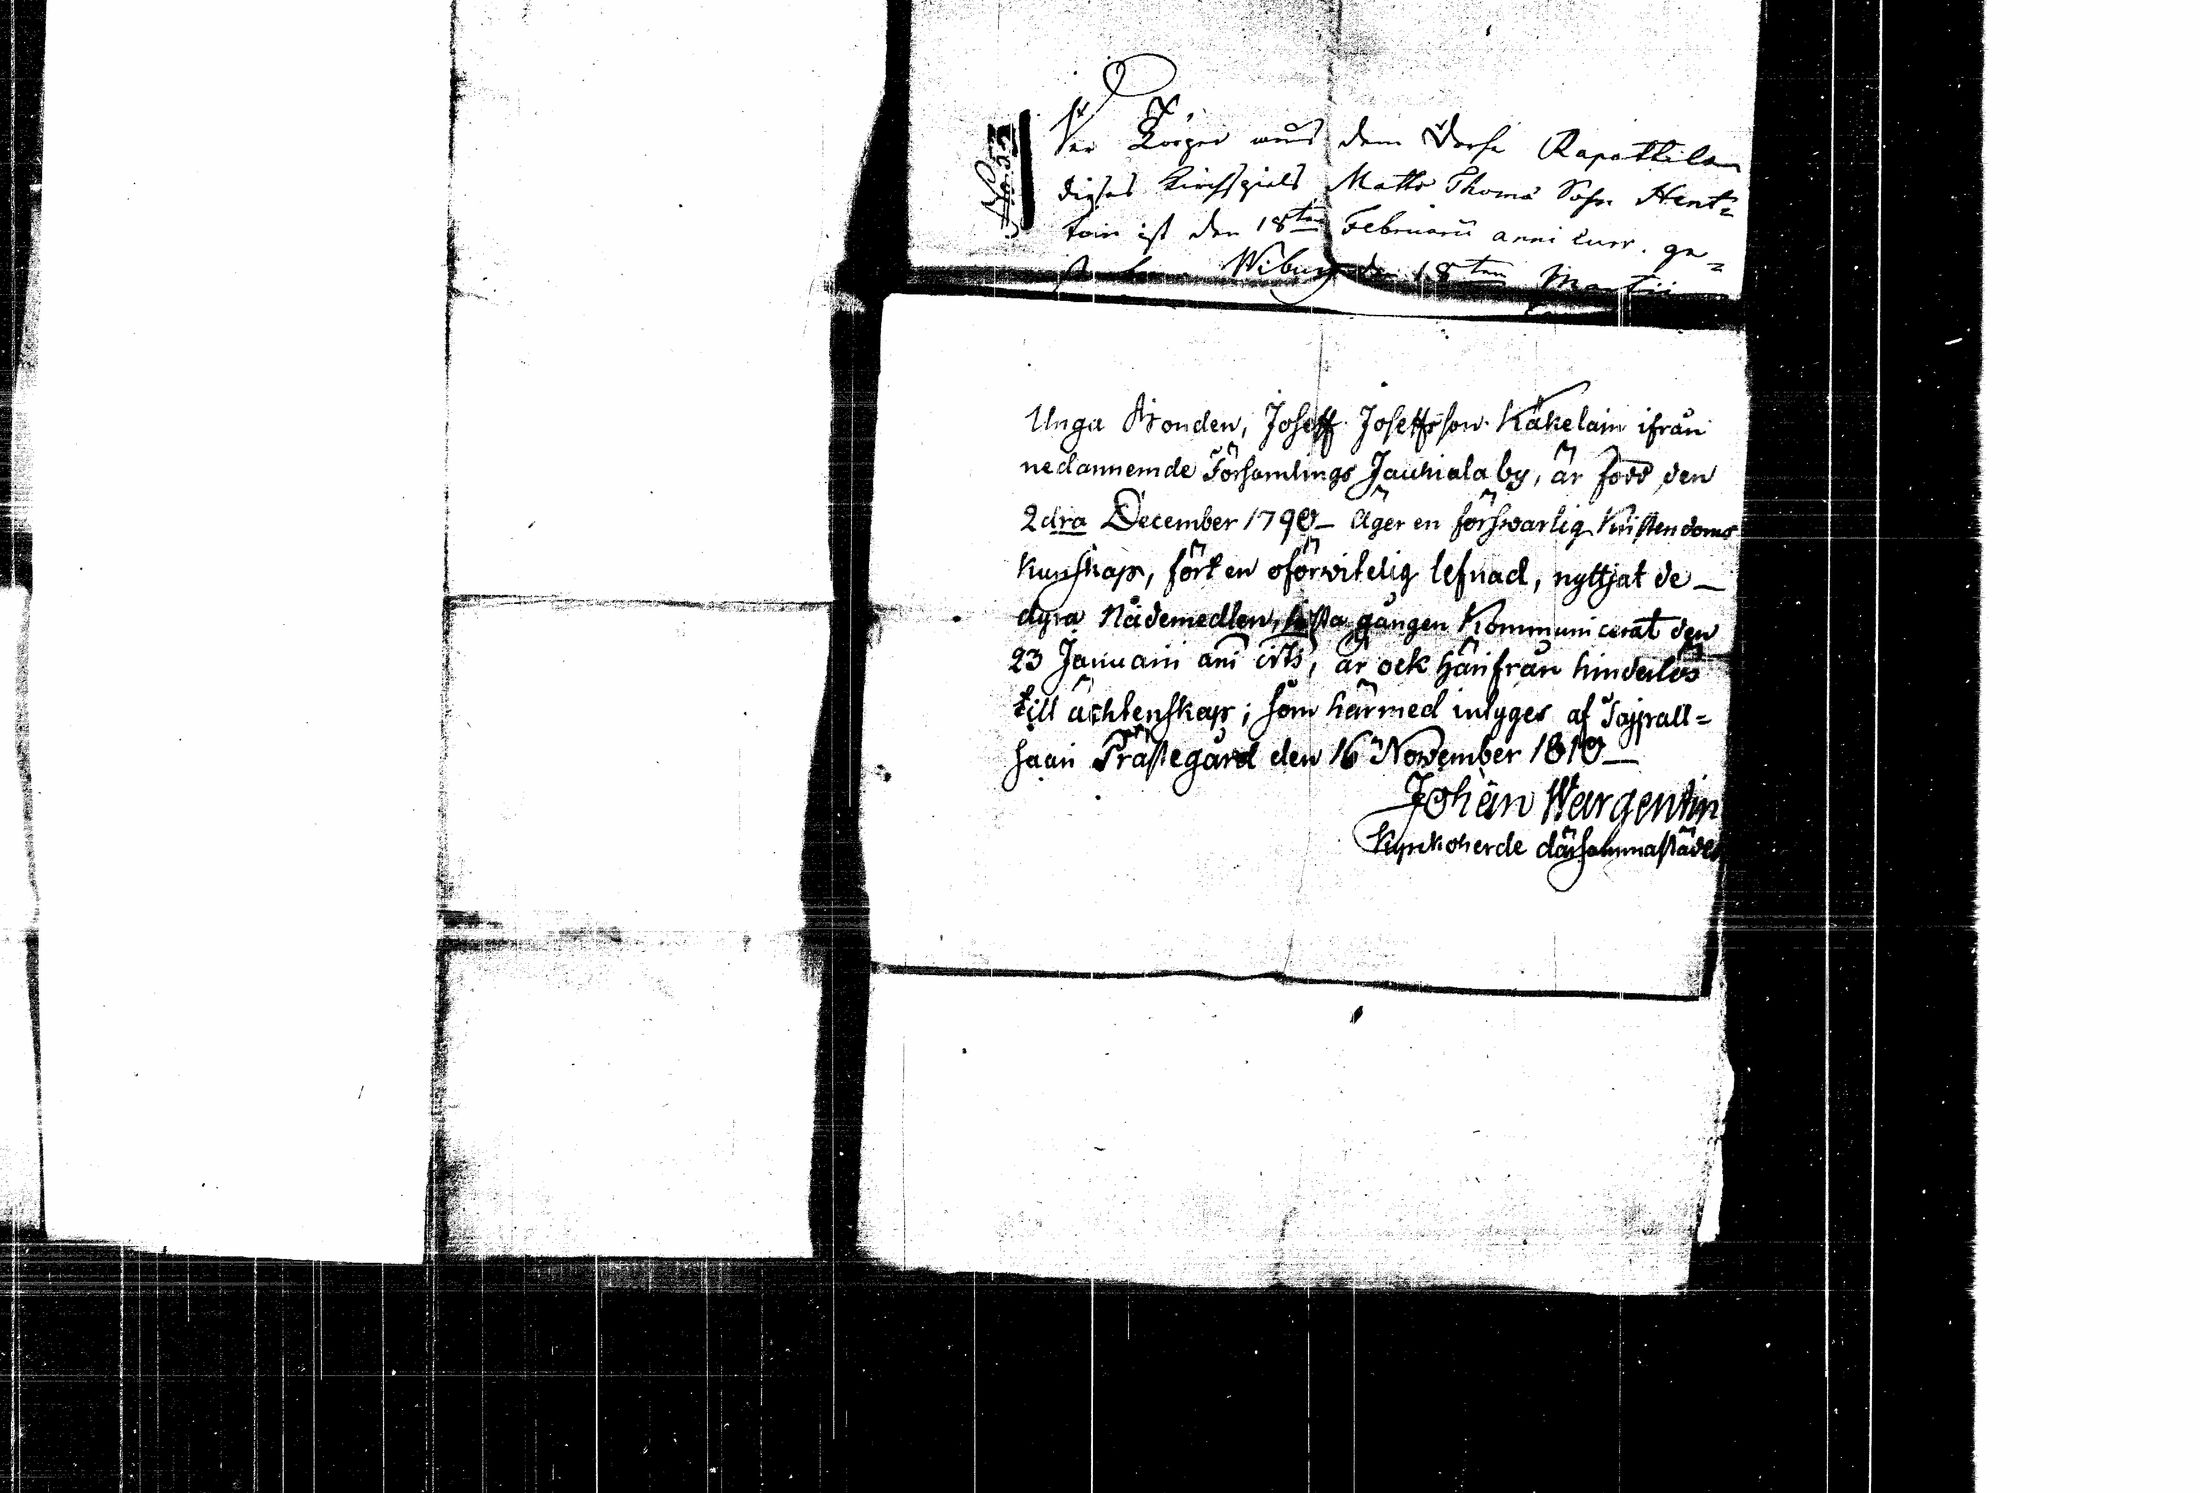 Der Körper aus dem Dorfe Rapattilan
dieses Kirchspiels Matts Thomä Sohn Hent=
toin ist den 18ten Februarii anni curr. ge=
Wiburg den 18ten Martii
Unga Bonden, Joseff Joseffsson Käkelain ifrån
nedannemde Församlings Jauhiala by, är född den
2dra December 1790 – Äger en förswarlig Kristendoms
Kunskap, fört en oförwitelig lefnad, nyttjat de –
dyra Nådemedlen, sista gången Kommunicerat den
23 Januarii ani cirts, är ock härifrån hinderlös
till ächtenskap; som härmed intyges af Tajpall=
saari Prästegård den 16 November 1810 –
Johan Wargentin
Kyrkoherde därsammastädes